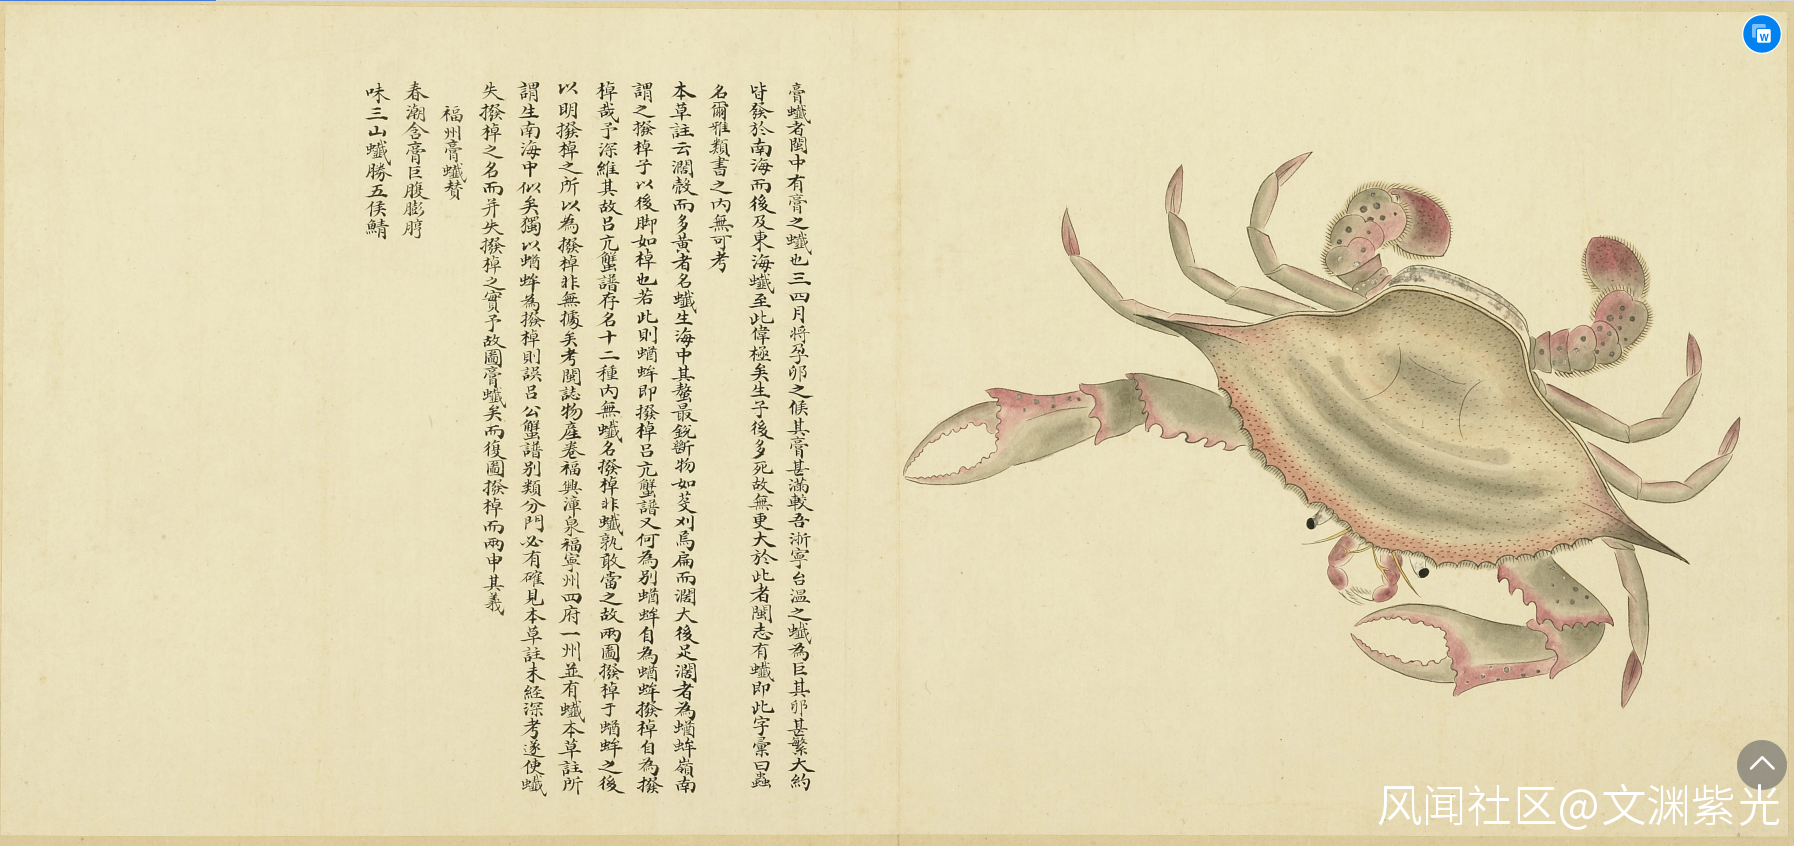 膏蠘者閩中有膏之蠘也三四月将孕卵之候其膏甚滿較吾浙寧台溫之蠘為巨其卵甚繁大約
皆發於南海而後及東海蠘至此偉極矣生子後多死故無更大於此者閩志有蠘即此字彙曰蟲
名爾雅類書之內無可考
本草註云濶殼而多黃者名蠘生海中其螯最銳斷物如芟刈焉扁而濶大後足濶者為蝤蛑嶺南
謂之撥棹子以後脚如棹也若此則蝤蛑即撥棹呂亢蟹譜又何為別蝤蛑自為蝤蛑撥棹自為撥
棹哉予深維其故呂亢蟹譜存名十二種內無蠘名撥棹非蠘孰敢當之故兩圖撥棹于蝤蛑之後
以明撥棹之所以為撥棹非無據矣考閩誌物產卷福興漳泉福寧州四府一州並有蠘本草註所
謂生南海中似矣獨以蝤蛑為撥棹則誤呂公蟹譜別類分門必有確見本草註未經深考遂使蠘
失撥棹之名而并失撥棹之實予故圖膏蠘矣而復圖撥棹而兩申其義
福州膏蠘賛
春潮含膏巨腹膨脝
味三山蠘勝五侯鯖
风闻社区@文渊紫光